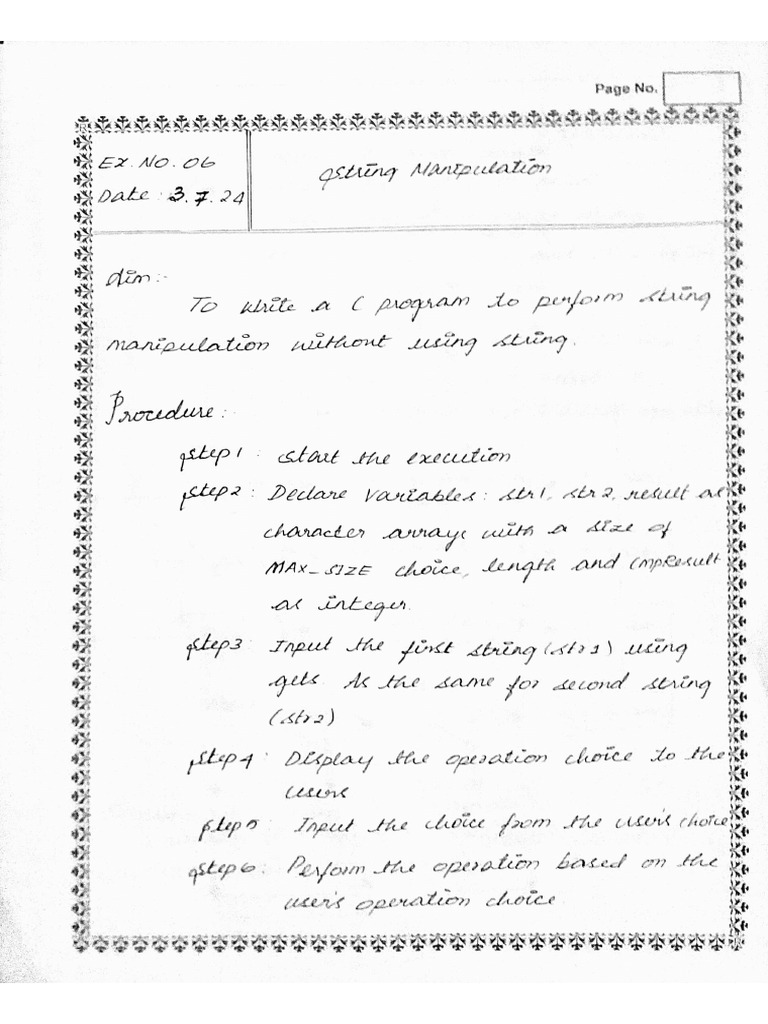 Page No.
Ex. No. 06
String Manipulation
Date : 3.7.24
Aim:-
To write a C program to perform string
manipulation without using string.
Procedure:-
Step 1 : Start the execution
Step 2 : Declare Variables : str1, str2, result as
character arrays with a size of
MAX_SIZE choice, length and CmpResult
as integer.
Step 3 : Input the first string (str1) using
gets. As the same for second string
(str2)
Step 4 : Display the operation choice to the
users
Step 5 : Input the choice from the user's choice
Step 6 : Perform the operation based on the
user's operation choice.